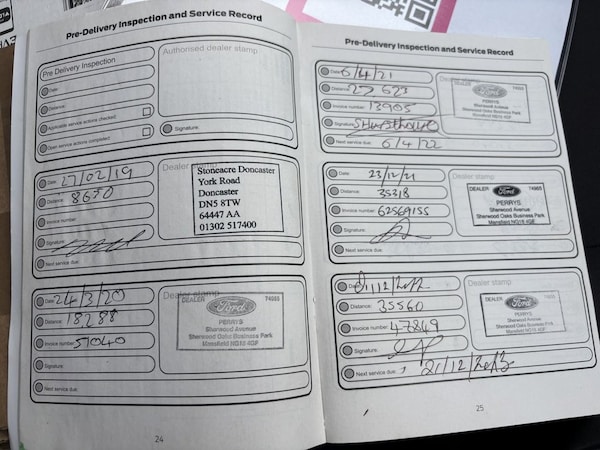 Pre-Delivery Inspection and Service Record
Pre Delivery Inspection
Date:
Distance:
Applicable service actions checked:
Open service actions completed:
Authorised dealer stamp
Signature:
Date: 27/02/19
Distance: 8650
Invoice number:
Signature:
Next service due:
Dealer stamp
Stoneacre Doncaster
York Road
Doncaster
DN5 8TW
64447 AA
01302 517400
Date: 24/3/20
Distance: 18288
Invoice number: 51040
Signature:
Next service due:
Dealer stamp
DEALER Ford 74985
PERRYS
Sherwood Avenue
Sherwood Oaks Business Park
Mansfield NG18 4GF
24
Pre-Delivery Inspection and Service Record
Date: 6/4/21
Distance: 27623
Invoice number: 13905
Signature:
Next service due: 6/4/22
Ford 74985
PERRYS
Sherwood Avenue
Sherwood Oaks Business Park
Mansfield NG18 4GF
Date: 23/12/21
Distance: 35318
Invoice number: 62569155
Signature:
Next service due:
Dealer stamp
DEALER Ford 74985
PERRYS
Sherwood Avenue
Sherwood Oaks Business Park
Mansfield NG18 4GF
Distance: 35560
Invoice number: 47849
Signature:
Next service due:
Dealer stamp
DEALER Ford 74985
PERRYS
Sherwood Avenue
Sherwood Oaks Business Park
Mansfield NG18 4GF
25